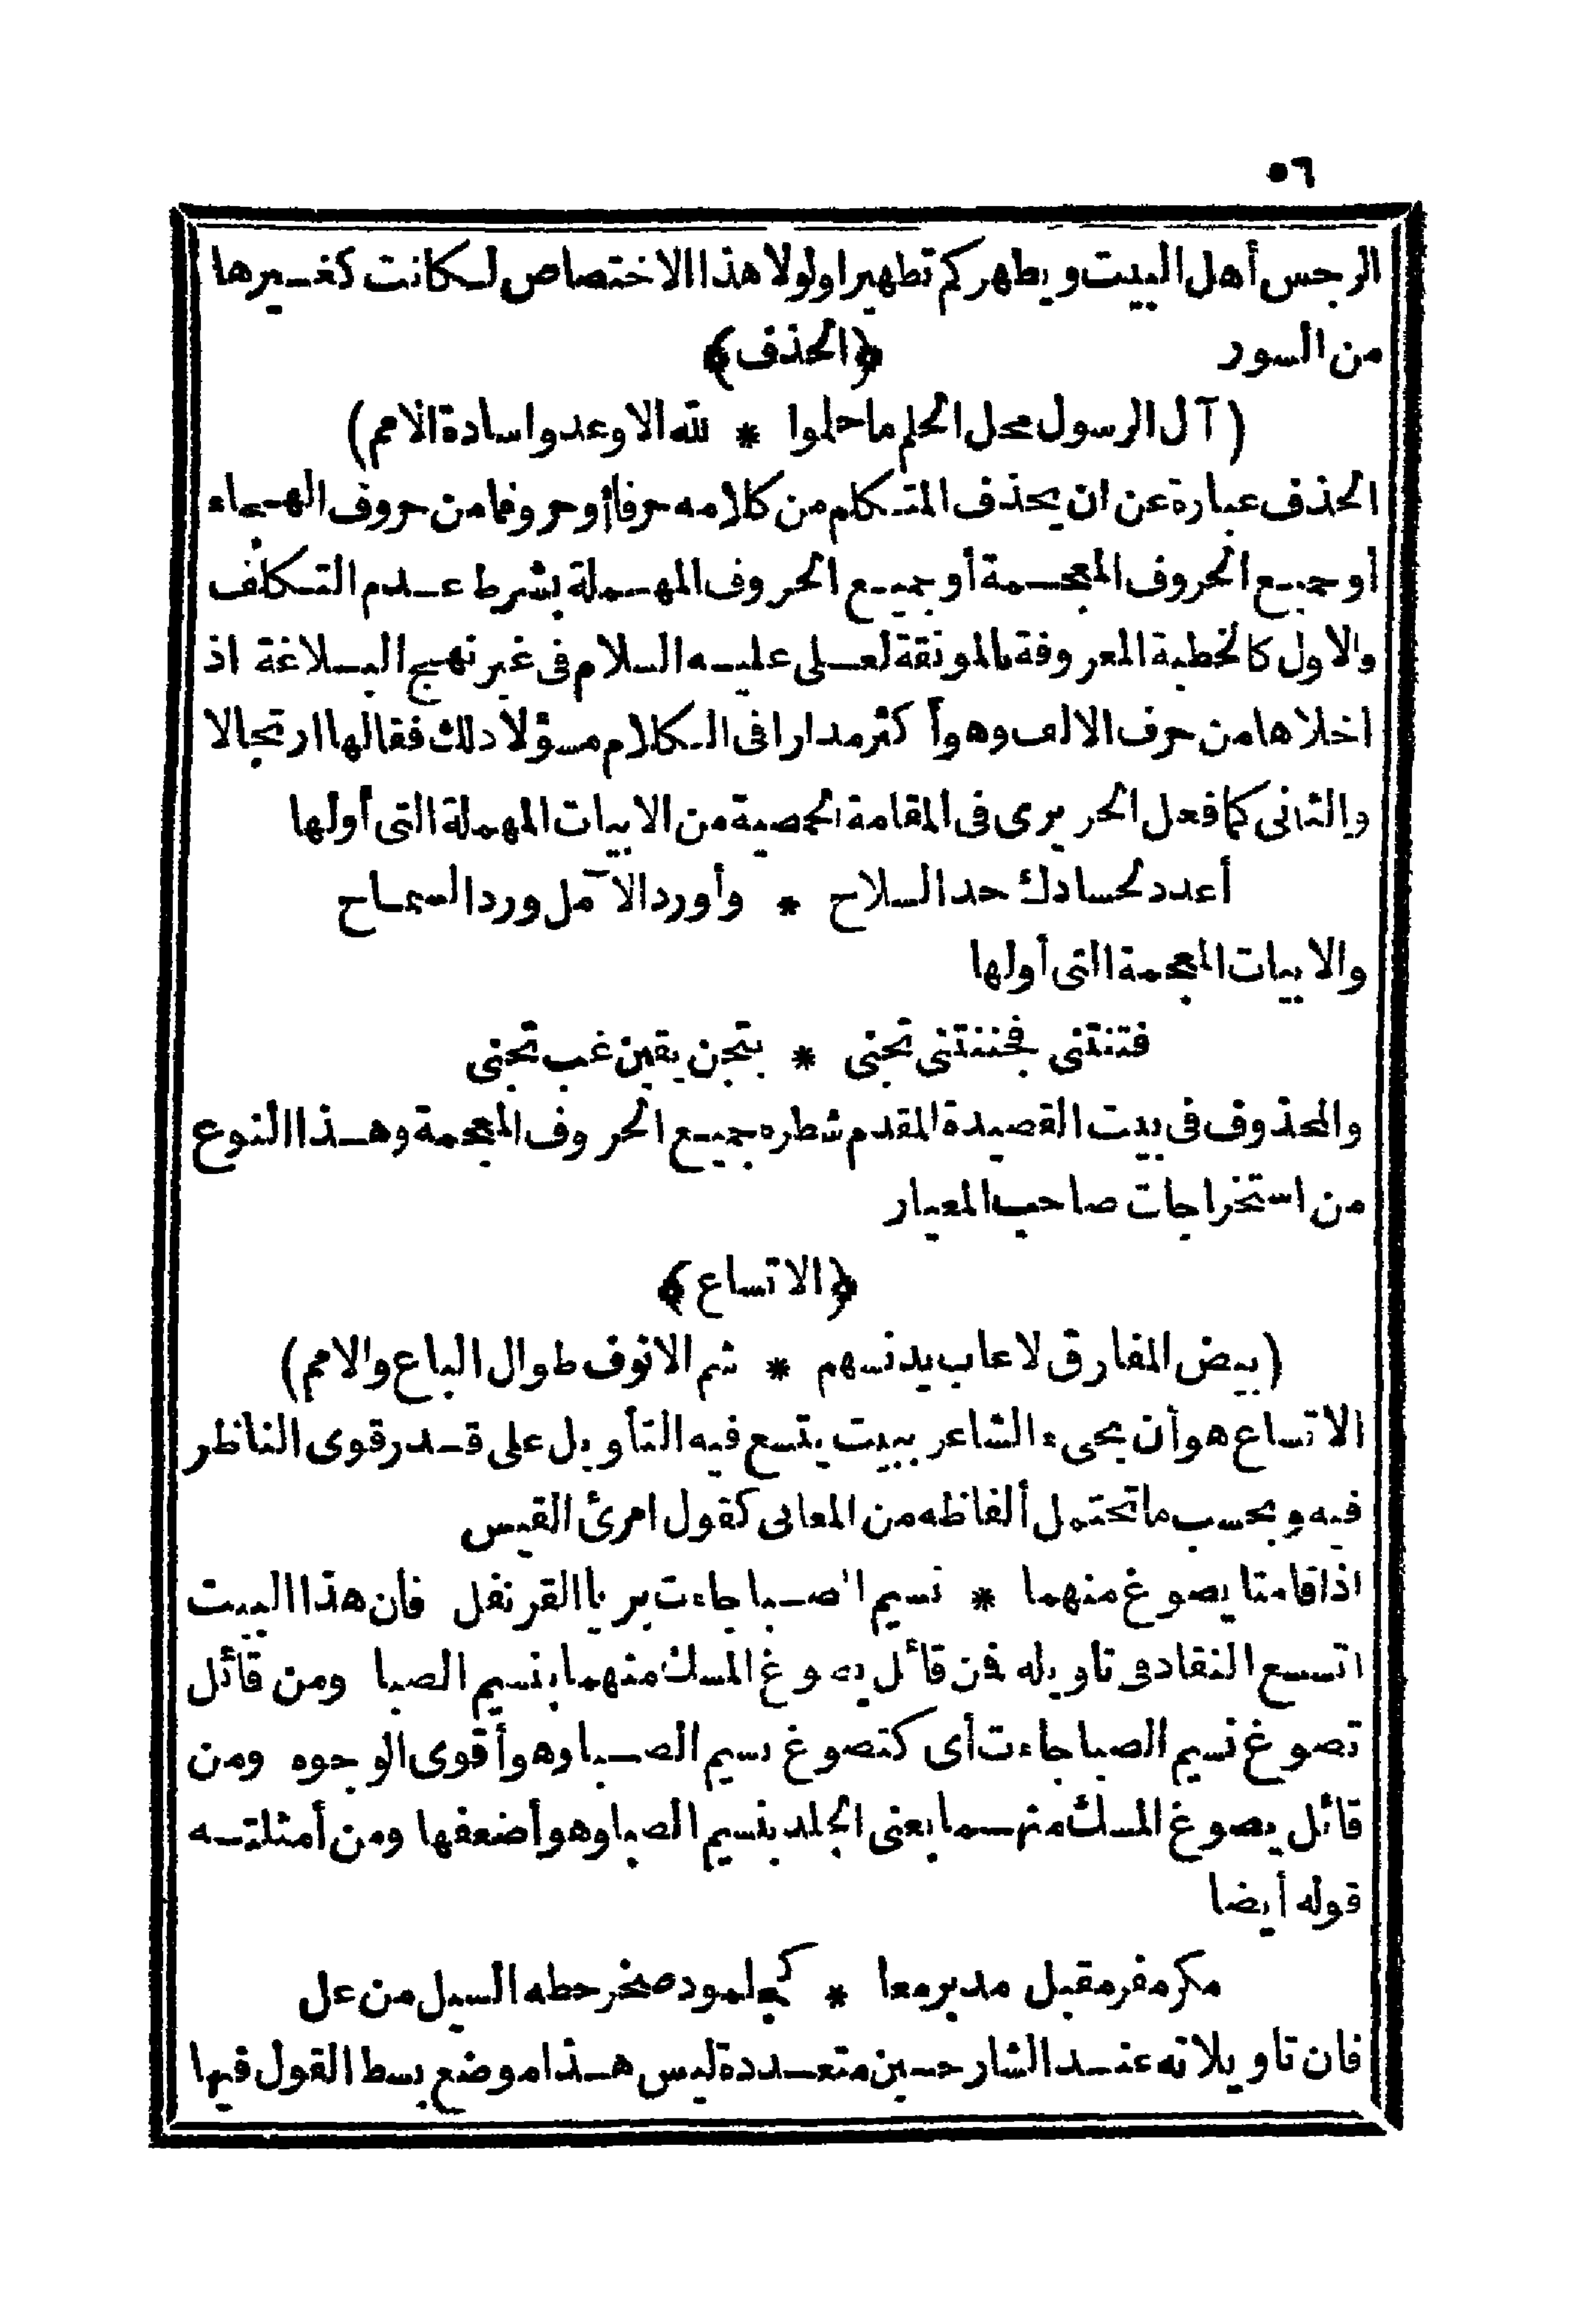 ٥٦
الرجس أهل البيت ويطهركم تطهيرا ولولا هذا الاختصاص لكانت كغيرها
من السور ﴿الحذف﴾
(آل الرسول محل الحلم ماحلوا * لله الا وعدوا سادة الامم)
الحذف عبارة عن ان يحذف المتكلم من كلامه حرفا أو حروفا من حروف الهجاء
أو جميع الحروف المعجمة أو جميع الحروف المهملة بشرط عدم التكلف
والاول كالخطبة المعروفة بالمونقة لعلى عليه السلام فى غير نهج البلاغة اذ
اخلاها من حرف الالف وهو أكثر مدارا فى الكلام مسؤلا ذلك فقالها ارتجالا
والثانى كما فعل الحريرى فى المقامة الحمصية من الابيات المهملة التى أولها
أعدد لحسادك حد السلاح * وأورد الآمل ورد السماح
والابيات المعجمة التى أولها
فتنتنى فجننتنى تجنى * بتجن يفتن غب تجنى
والمحذوف فى بيت القصيدة المقدم شطره جميع الحروف المعجمة وهذا النوع
من استخراجات صاحب المعيار
﴿الاتساع﴾
(بيض المفارق لاعاب يدنسهم * شم الانوف طوال الباع والامم)
الاتساع هو أن يجىء الشاعر ببيت يتسع فيه التأويل على قدر قوى الناظر
فيه وبحسب ماتحتمل ألفاظه من المعانى كقول امرئ القيس
اذا قامتا يضوع منهما * نسيم الصبا جاءت بريا القرنفل فان هذا البيت
اتسع النقاد فى تاويله فمن قائل يضوع المسك منهما بنسيم الصبا ومن قائل
تضوع نسيم الصبا جاءت أى كتضوع نسيم الصبا وهو أقوى الوجوه ومن
قائل يضوع المسك منهما يعنى الجلد بنسيم الصبا وهو أضعفها ومن أمثلته
قوله أيضا
مكر مفر مقبل مدبر معا * كجلمود صخر حطه السيل من عل
فان تاويلاته عند الشارحين متعددة ليس هذا موضع بسط القول فيها